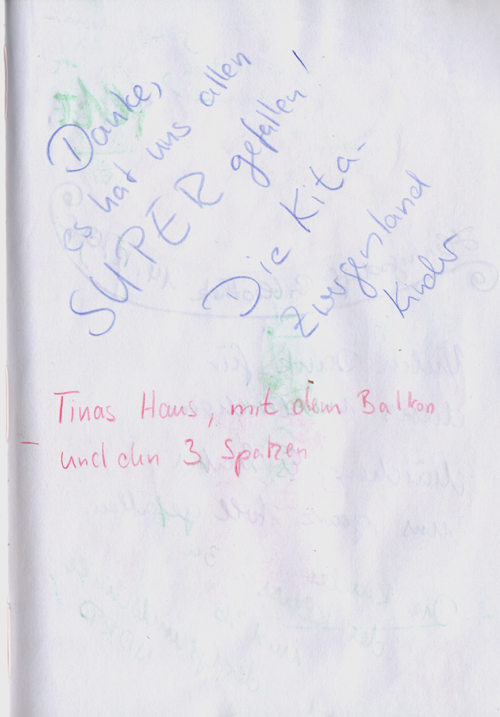 Danke,
es hat uns allen
SUPER gefallen!
Die Kita-
Zwergenland
Kinder
Tinas Haus, mit dem Balkon
- und den 3 Spatzen